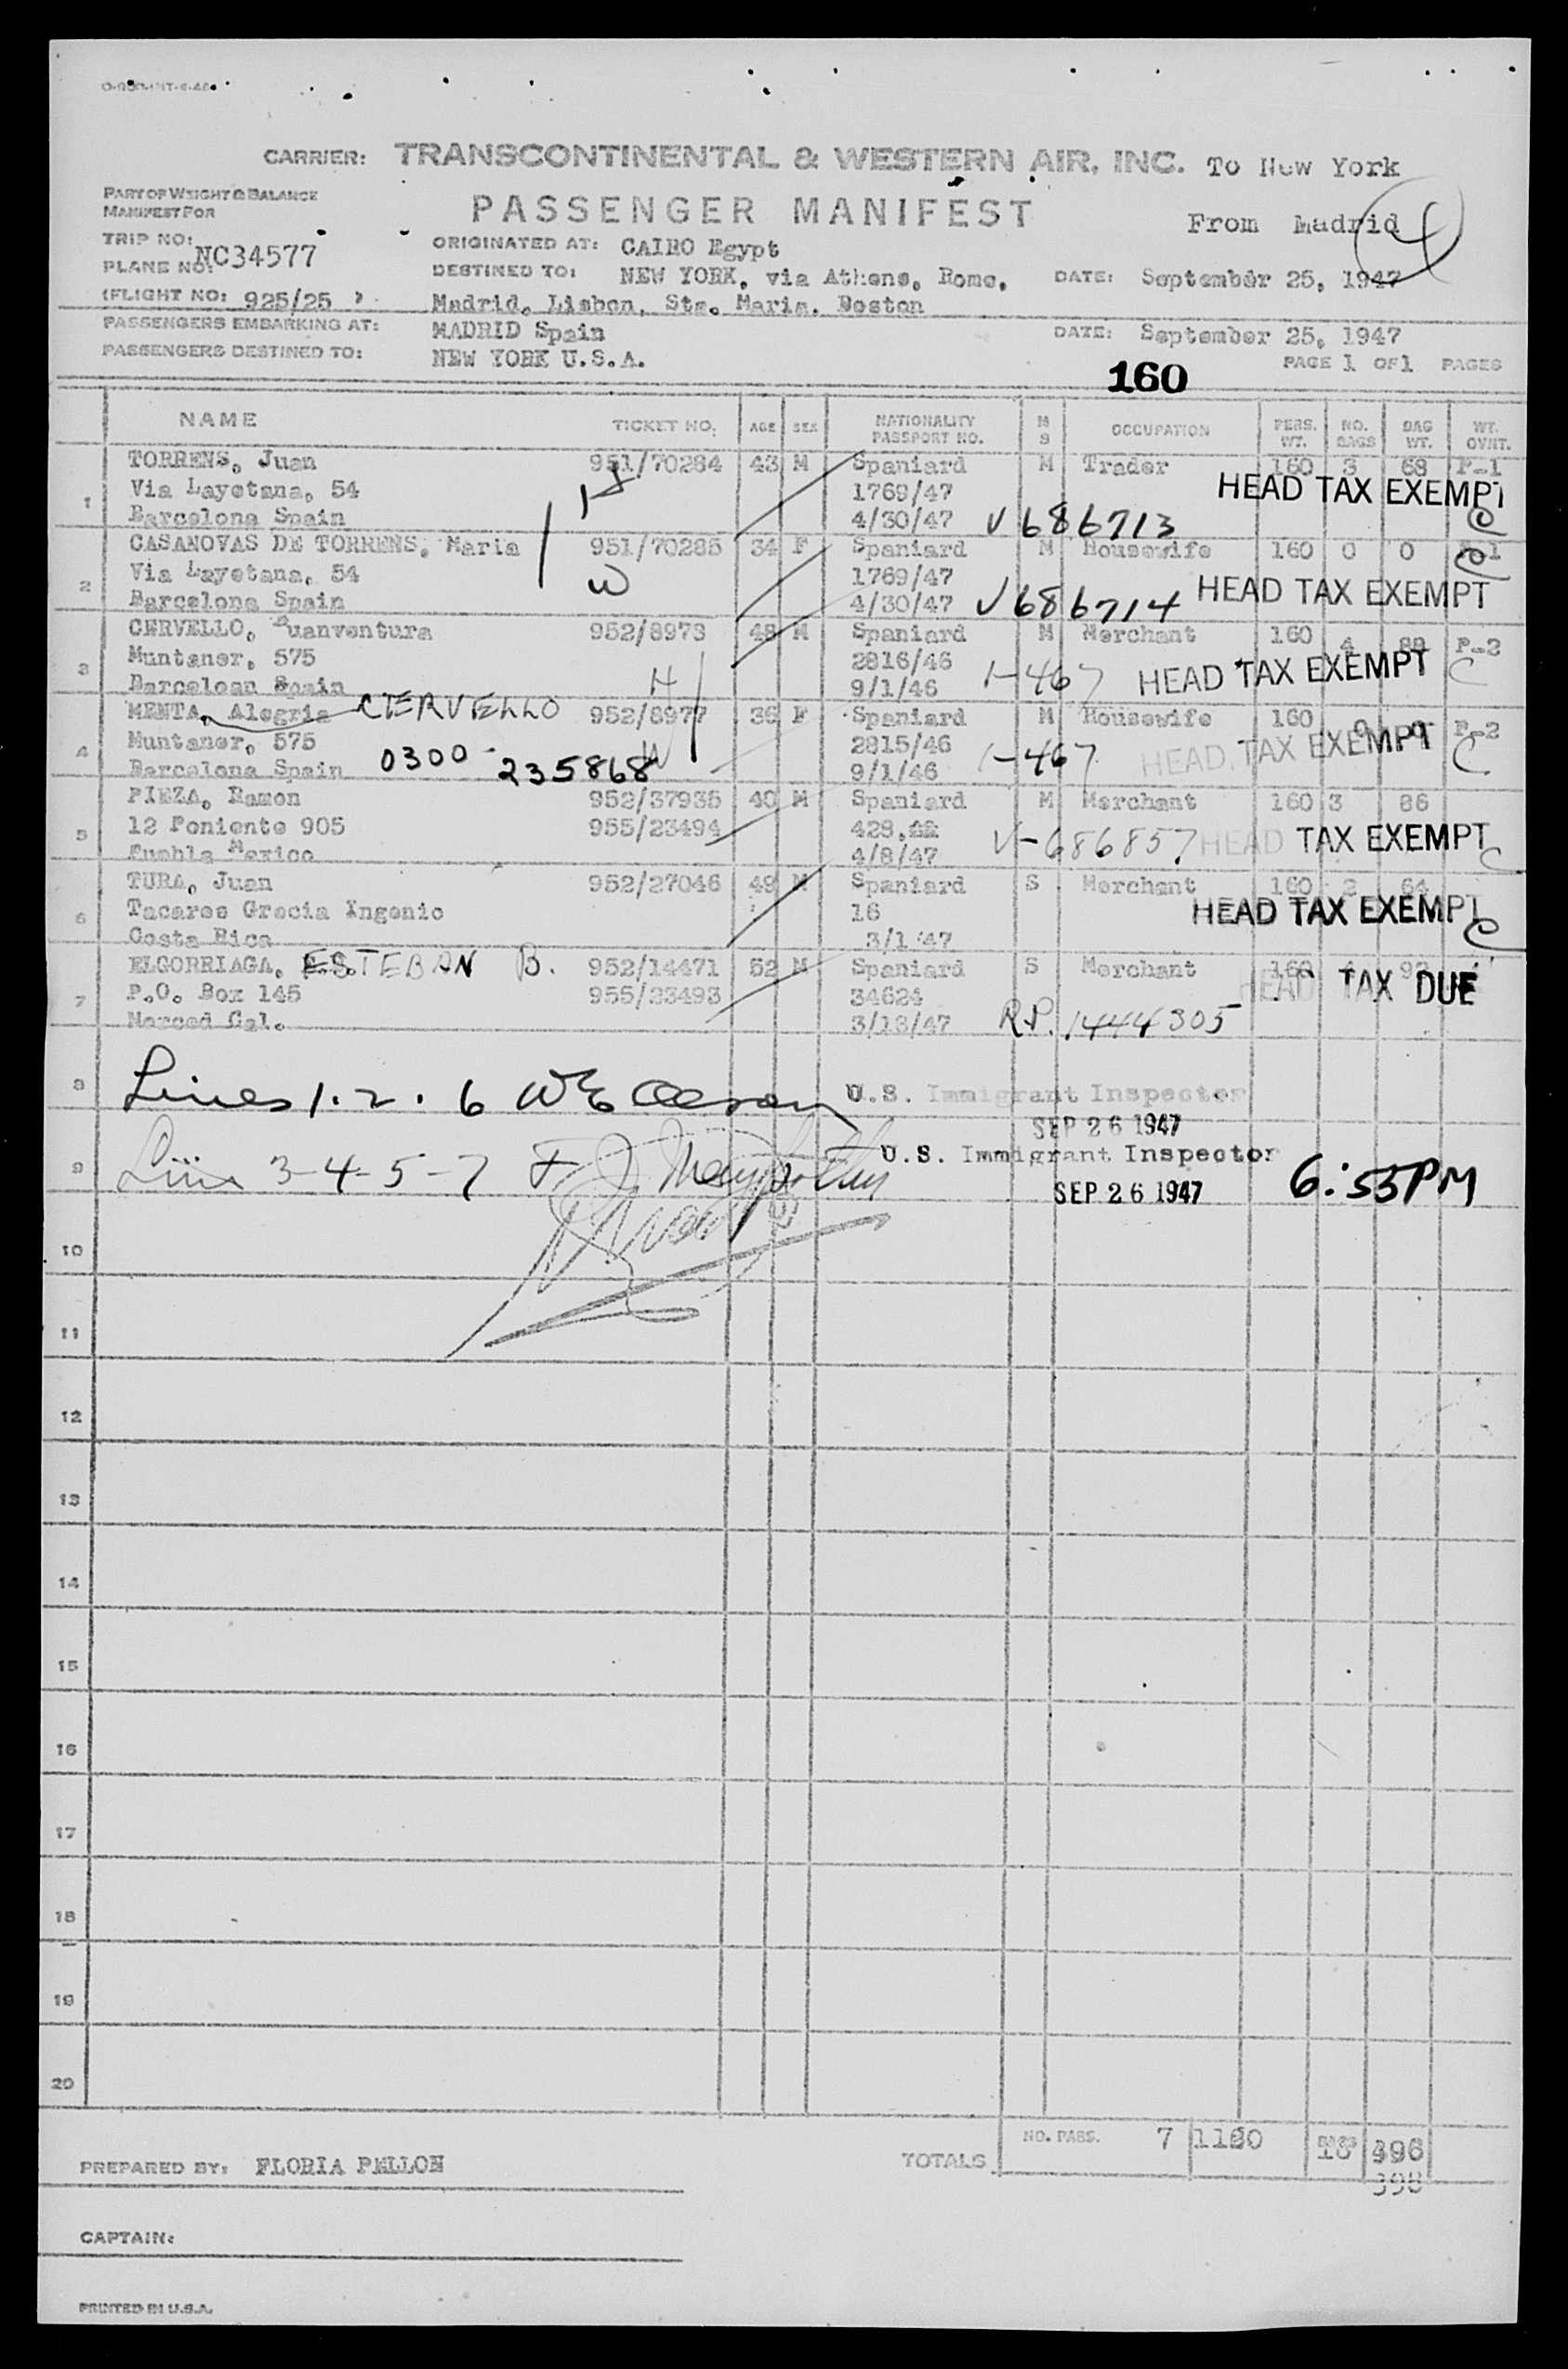 CARRIER: TRANSCONTINENTAL & WESTERN AIR, INC. To New York
PART OF WEIGHT & BALANCE
MANIFEST FOR
PASSENGER MANIFEST
From Madrid
4
TRIP NO:
PLANE NO: NC34577
(FLIGHT NO: 925/25 )
ORIGINATED AT: CAIRO Egypt
DESTINED TO: NEW YORK, via Athens, Rome,
Madrid, Lisbon, Sta. Maria. Boston
DATE: September 25, 1947
PASSENGERS EMBARKING AT: MADRID Spain
DATE: September 25, 1947
PASSENGERS DESTINED TO: NEW YORK U.S.A.
PAGE 1 OF 1 PAGES
160
NAME TICKET NO. AGE SEX NATIONALITY PASSPORT NO. M S OCCUPATION PERS. WT. NO. BAGS BAG WT. WT. OVNT.
TORRENS, Juan 951/70284 43 M Spaniard M Trader 160 3 68 P-1
1 Via Layetana, 54 H 1769/47 HEAD TAX EXEMPT
Barcelona Spain 4/30/47 V686713
CASANOVAS DE TORRENS, Maria 951/70285 34 F Spaniard M Housewife 160 0 0
2 Via Layetana, 54 W 1769/47 HEAD TAX EXEMPT
Barcelona Spain 4/30/47 V686714
CERVELLO, Buanventura 952/8973 48 M Spaniard M Merchant 160 4 88 P-2
3 Muntaner, 575 H 2816/46 HEAD TAX EXEMPT C
Barceloan Spain 9/1/46 1-467
MENTA, Alegria CIERVELLO 952/8977 36 F Spaniard M Housewife 160 0 0 P-2
4 Muntaner, 575 W 2815/46 HEAD TAX EXEMPT C
Barcelona Spain 0300-235868 9/1/46 1-467
PIEZA, Ramon 952/37935 40 M Spaniard M Merchant 160 3 86
5 12 Poniente 905 955/23494 428, V-686857 HEAD TAX EXEMPT C
Puebla Mexico 4/8/47
TURA, Juan 952/27046 49 M Spaniard S Merchant 160 2 64
6 Tacares Grecia Ingenio 16 HEAD TAX EXEMPT C
Costa Rica 3/1/47
ELGORRIAGA, ESTEBAN B. 952/14471 52 M Spaniard S Merchant 160
7 P.O. Box 145 955/23493 34624 HEAD TAX DUE
Merced Cal. 3/13/47 R.P. 1444305
8 Lines 1.2.6 U.S. Immigrant Inspector
SEP 26 1947
9 Line 3-4-5-7 U.S. Immigrant Inspector
SEP 26 1947 6:55PM
10
11
12
13
14
15
16
17
18
19
20
TOTALS NO. PASS. 7 1120 BAGS 396
398
PREPARED BY: FLORIA PELLON
CAPTAIN:
PRINTED IN U.S.A.